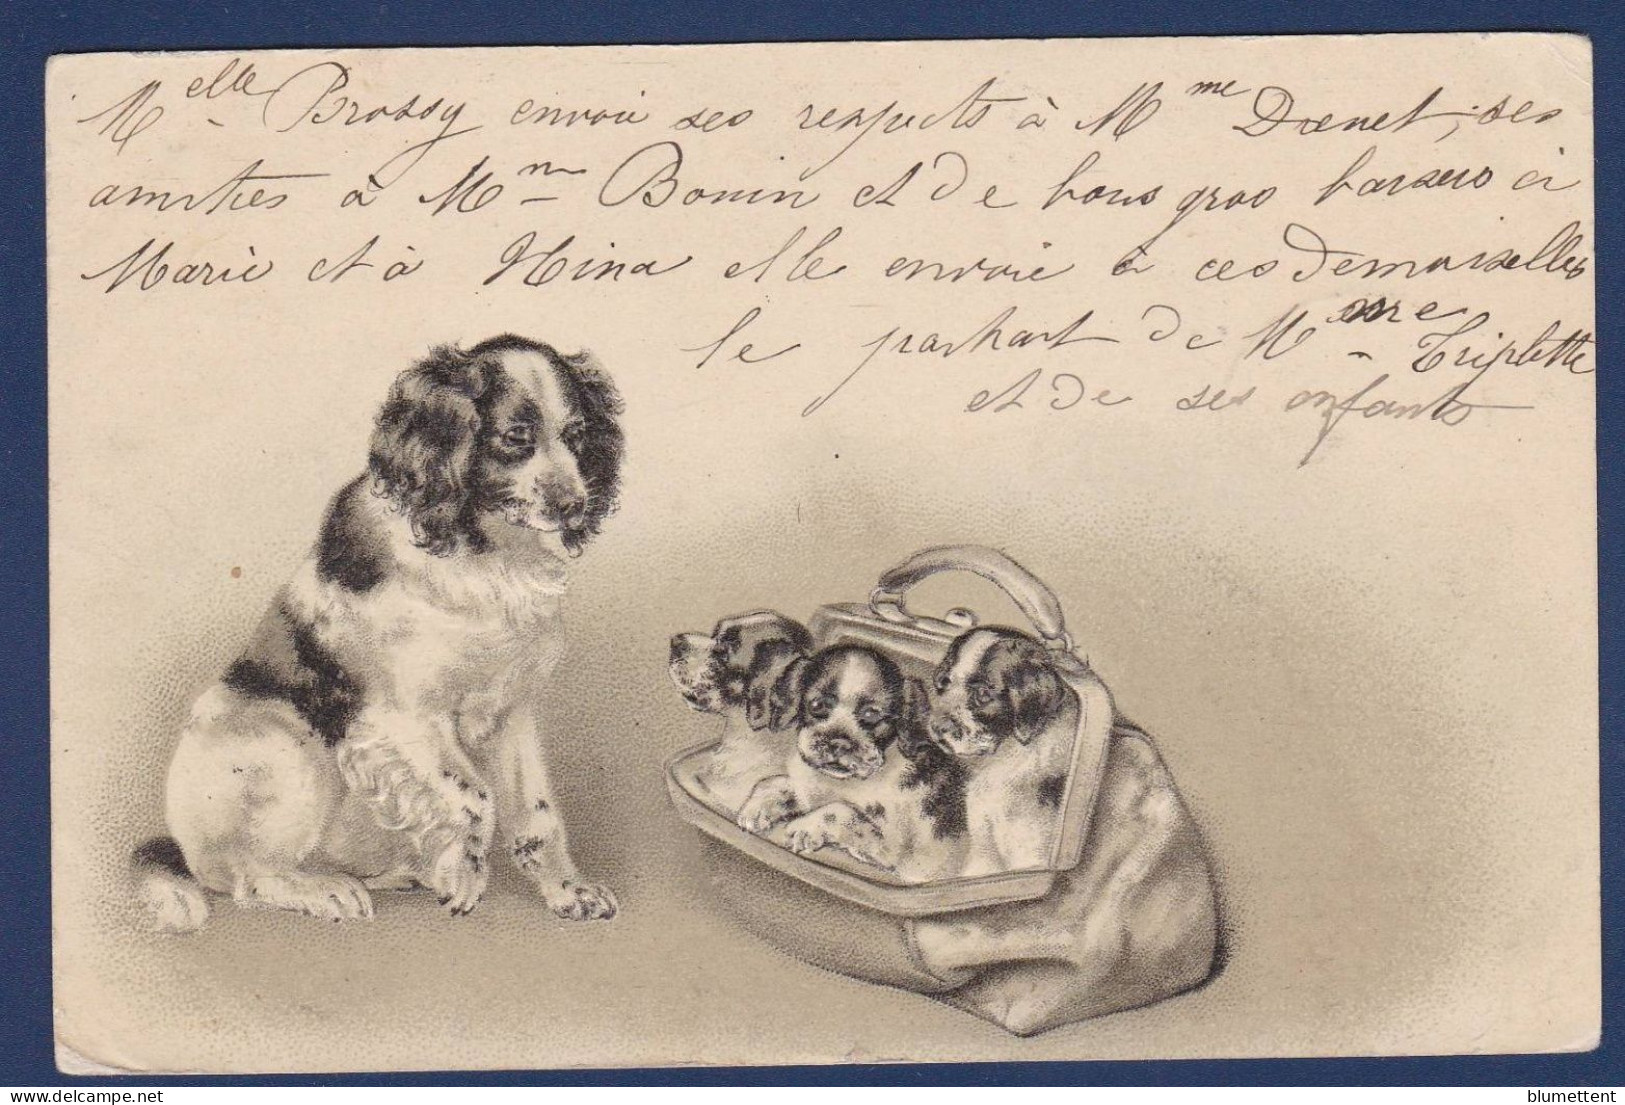 Melle Brossy envoie ses respects à Mme Doenet, ses
amitiés à Mme Bonin et de bons gros baisers à
Marie et à Nina elle envoie à ces demoiselles
le portrait de Mme Triplette
et de ses enfants
delcampe.net
blumettent